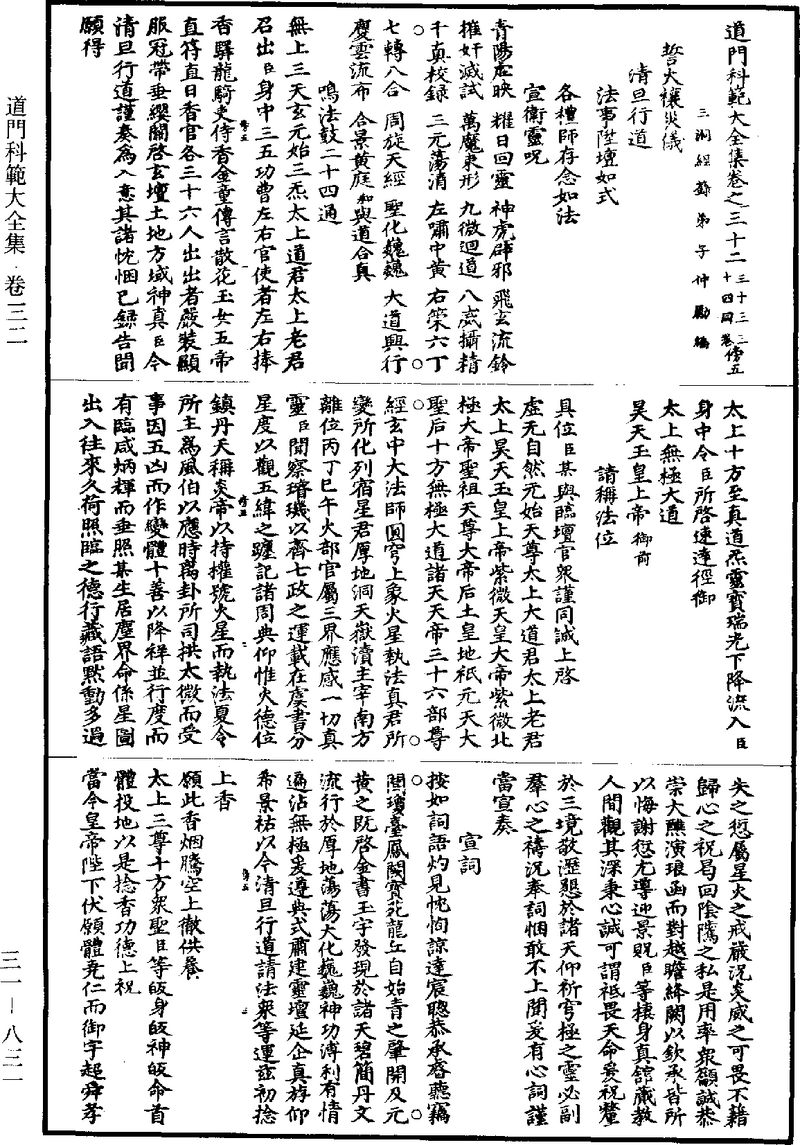 道門科範大全集卷之三十二 三十三三十四同卷 傍五
三洞經籙弟子仲勵編
誓火禳災儀
清旦行道
法事陞壇如式
各禮師存念如法
宣衛靈呪
青陽虛映 耀日回靈 神虎辟邪 飛玄流鈴
摧奸滅試 萬魔束形 九微迴道 八威攝精
千真校錄 三元蕩清 左嘯中黃 右策六丁
七轉八合 周旋天經 聖化巍巍 大道興行
慶雲流布 合景黃庭 和與道合真
鳴法鼓二十四通
無上三天玄元始三炁太上道君太上老君
召出臣身中三五功曹左右官使者左右捧
香驛龍騎吏侍香金童傳言散花玉女五帝
直符直日香官各三十六人出出者嚴裝顯
服冠帶垂纓關啓玄壇土地方域神真臣今
清旦行道謹奏為入意其諸忱悃已錄告聞
願得
太上十方至真道炁靈寶瑞光下降流入臣
身中令臣所啓速達徑御
太上無極大道
昊天玉皇上帝御前
請稱法位
具位臣某與臨壇官衆謹同誠上啓
虛无自然元始天尊太上大道君太上老君
太上昊天玉皇上帝紫微天皇大帝紫微北
極大帝聖祖天尊大帝后土皇地祇元天大
聖后十方無極大道諸天天帝三十六部尊
經玄中大法師圓穹上象火星執法真君所
變所化列宿星君厚地洞天嶽瀆主宰南方
離位丙丁巳午火部官屬三界應感一切真
靈臣聞察璿璣以齊七政之運載在虞書分
星度以觀五緯之躔記諸周典仰惟火德位
鎮丹天稱炎帝以持權號火星而執法夏令
所主為風伯以應時萬卦所司拱太微而受
事因五凶而作變體十善以降祥並行度而
有臨咸炳輝而垂照某生居塵界命係星圖
出入往來久荷照臨之德行藏語默動多過
失之愆屬星火之戒嚴況炎威之可畏不藉
歸心之祝曷回陰隲之私是用率衆籲誠恭
崇大醮演琅函而對越瞻絳闕以欽承皆所
以悔謝愆尤導迎景貺臣等棲身真舘職教
人間觀其深秉心誠可謂祗畏天命爰祝釐
於三境敢瀝懇於諸天仰祈穹極之靈必副
羣心之禱況奉詞悃敢不上聞爰有心詞謹
當宣奏
宣詞
按如詞語灼見忱恂諒達宸聰恭承睿聽竊
聞瓊臺鳳闕寶苑龍丘自始青之肇開及元
黃之既啓金書玉字發現於諸天碧簡丹文
流行於厚地蕩蕩大化巍巍神功溥利有情
遍沾無極爰遵典式肅建靈壇延企真遊仰
希景祐以今清旦行道請法衆等運茲初捻
上香
願此香烟騰空上徹供養
太上三尊十方衆聖臣等皈身皈神皈命首
體投地以是捻香功德上祝
當今皇帝陛下伏願體堯仁而御宇超舜孝
道門科範大全集·卷三二
三一—八三一